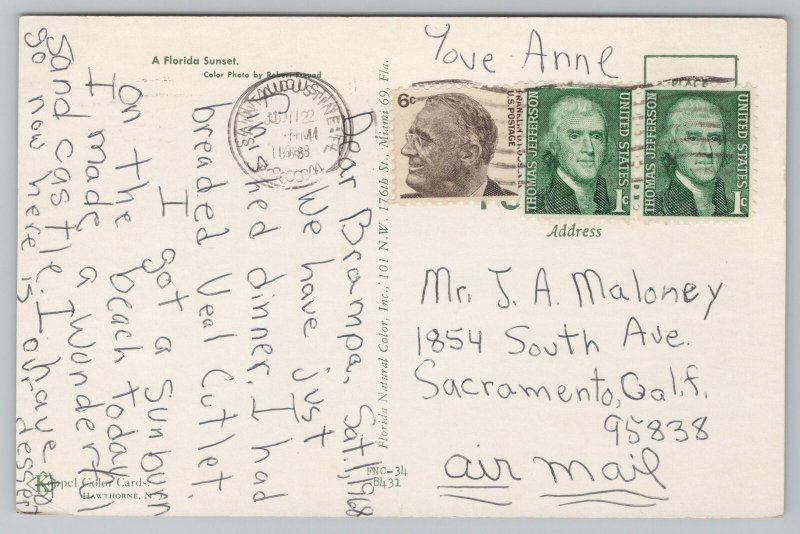 A Florida Sunset.
Color Photo by Robert Freund
Dear Brampa, Sat. 1, 1968
We have just
finished dinner. I had
breaded Veal Cutlet.
I got a Sunburn
on the beach today.
I made a Wonderful
Sand castle. I have to
go now here is our dessert
Love Anne
Florida Natural Color, Inc., 101 N.W. 176th St., Miami 69, Fla.
6c
FRANKLIN D. ROOSEVELT
U.S. POSTAGE
THOMAS JEFFERSON
UNITED STATES
1c
THOMAS JEFFERSON
UNITED STATES
1c
PLACE
Address
Mr. J. A. Maloney
1854 South Ave.
Sacramento, Calif.
95838
air mail
FNC-34
B431
Koppel Color Cards.
HAWTHORNE, N. J.